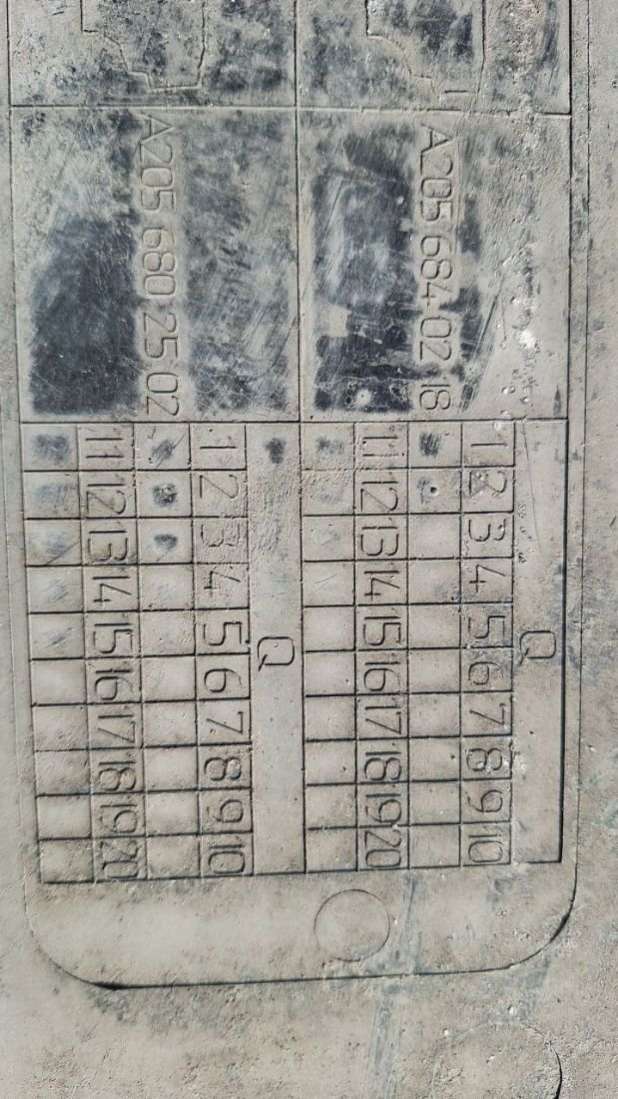 A205 684 02 18
Q
1 2 3 4 5 6 7 8 9 10
11 12 13 14 15 16 17 18 19 20
A205 680 25 02
Q
1 2 3 4 5 6 7 8 9 10
11 12 13 14 15 16 17 18 19 20